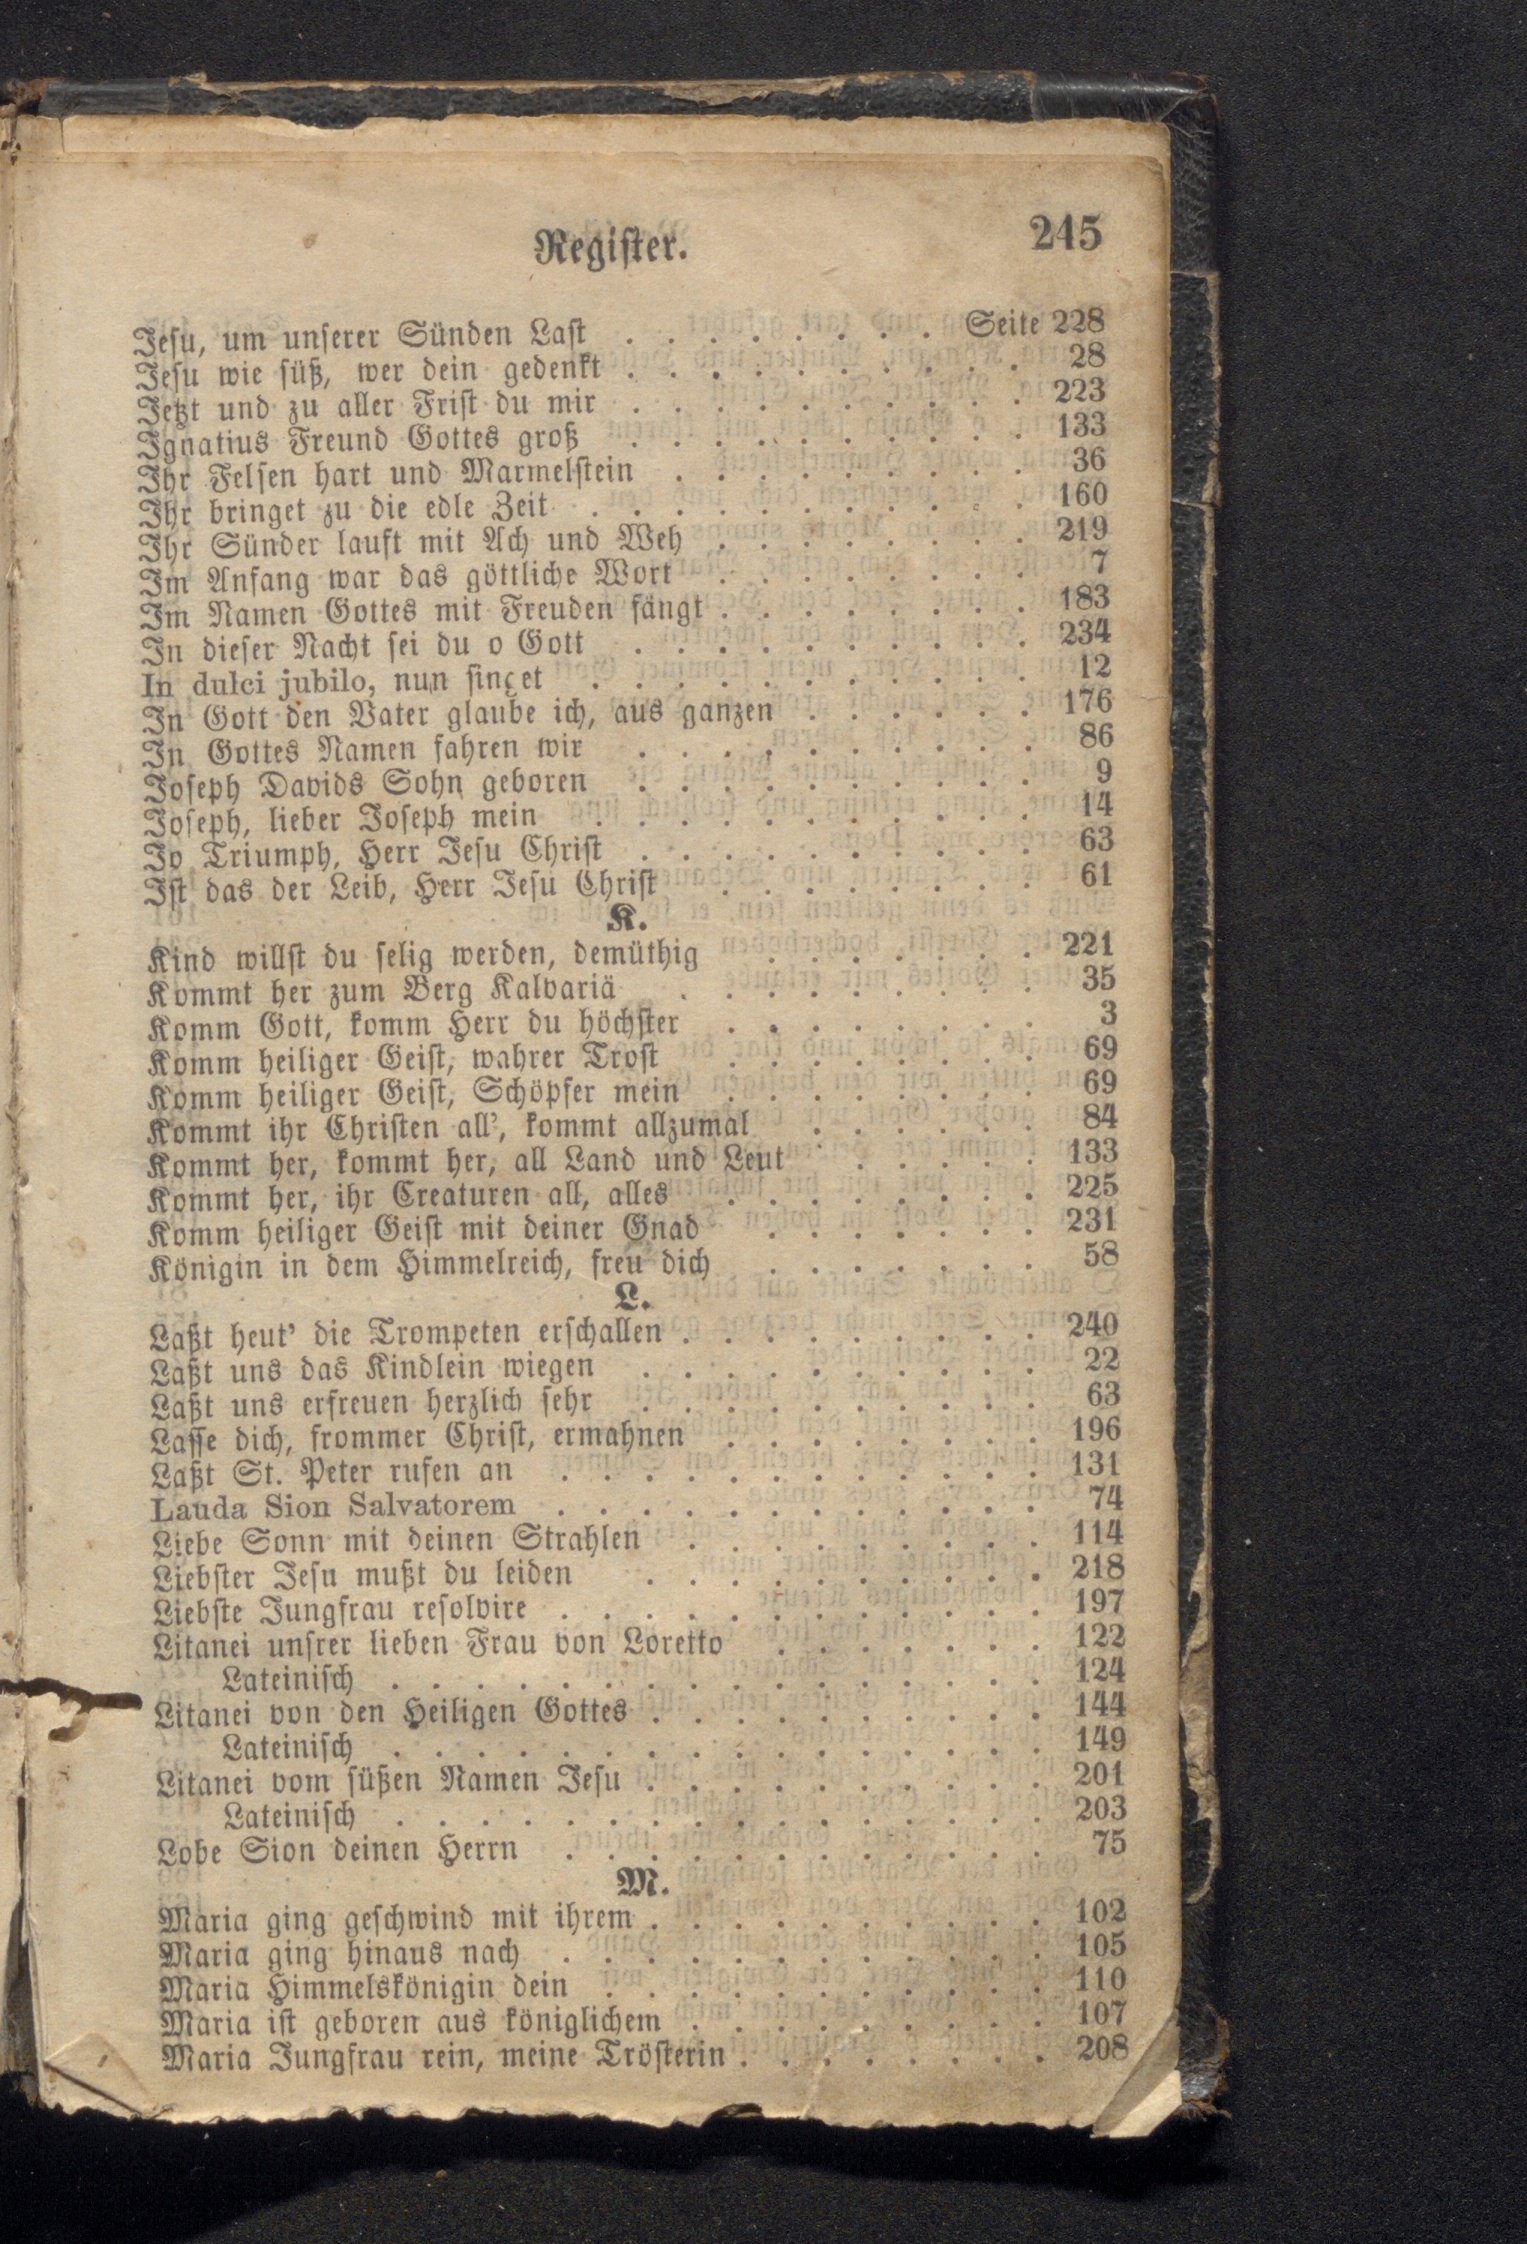 Register.
245
Jesu, um unserer Sünden Last . . . . . . . . Seite 228
Jesu wie süß, wer dein gedenkt . . . . . . . . . . 28
Jetzt und zu aller Frist du mir . . . . . . . . . . 223
Ignatius Freund Gottes groß . . . . . . . . . . 133
Ihr Felsen hart und Marmelstein . . . . . . . . . 36
Ihr bringet zu die edle Zeit . . . . . . . . . . . 160
Ihr Sünder lauft mit Ach und Weh . . . . . . . . 219
Im Anfang war das göttliche Wort . . . . . . . . 7
Im Namen Gottes mit Freuden fängt . . . . . . . . 183
In dieser Nacht sei du o Gott . . . . . . . . . . 234
In dulci jubilo, nun singet . . . . . . . . . . . 12
In Gott den Vater glaube ich, aus ganzen . . . . . . 176
In Gottes Namen fahren wir . . . . . . . . . . 86
Joseph Davids Sohn geboren . . . . . . . . . . 9
Joseph, lieber Joseph mein . . . . . . . . . . . 14
Jo Triumph, Herr Jesu Christ . . . . . . . . . . 63
Ist das der Leib, Herr Jesu Christ . . . . . . . . 61
K.
Kind willst du selig werden, demüthig . . . . . . . 221
Kommt her zum Berg Kalvariä . . . . . . . . . 35
Komm Gott, komm Herr du höchster . . . . . . . . 3
Komm heiliger Geist, wahrer Trost . . . . . . . . 69
Komm heiliger Geist, Schöpfer mein . . . . . . . . 69
Kommt ihr Christen all', kommt allzumal . . . . . . 84
Kommt her, kommt her, all Land und Leut . . . . . 133
Kommt her, ihr Creaturen all, alles . . . . . . . . 225
Komm heiliger Geist mit deiner Gnad . . . . . . . 231
Königin in dem Himmelreich, freu dich . . . . . . . 58
L.
Laßt heut' die Trompeten erschallen . . . . . . . . . 240
Laßt uns das Kindlein wiegen . . . . . . . . . . 22
Laßt uns erfreuen herzlich sehr . . . . . . . . . . 63
Lasse dich, frommer Christ, ermahnen . . . . . . . . 196
Laßt St. Peter rufen an . . . . . . . . . . . . 131
Lauda Sion Salvatorem . . . . . . . . . . . . 74
Liebe Sonn mit deinen Strahlen . . . . . . . . . 114
Liebster Jesu mußt du leiden . . . . . . . . . . 218
Liebste Jungfrau resolvire . . . . . . . . . . . . 197
Litanei unsrer lieben Frau von Loretto . . . . . . . 122
Lateinisch . . . . . . . . . . . . . . . . 124
Litanei von den Heiligen Gottes . . . . . . . . . . 144
Lateinisch . . . . . . . . . . . . . . . . 149
Litanei vom süßen Namen Jesu . . . . . . . . . . 201
Lateinisch . . . . . . . . . . . . . . . . 203
Lobe Sion deinen Herrn . . . . . . . . . . . . 75
M.
Maria ging geschwind mit ihrem . . . . . . . . . . 102
Maria ging hinaus nach . . . . . . . . . . . . 105
Maria Himmelskönigin dein . . . . . . . . . . . 110
Maria ist geboren aus königlichem . . . . . . . . . 107
Maria Jungfrau rein, meine Trösterin . . . . . . . . 208